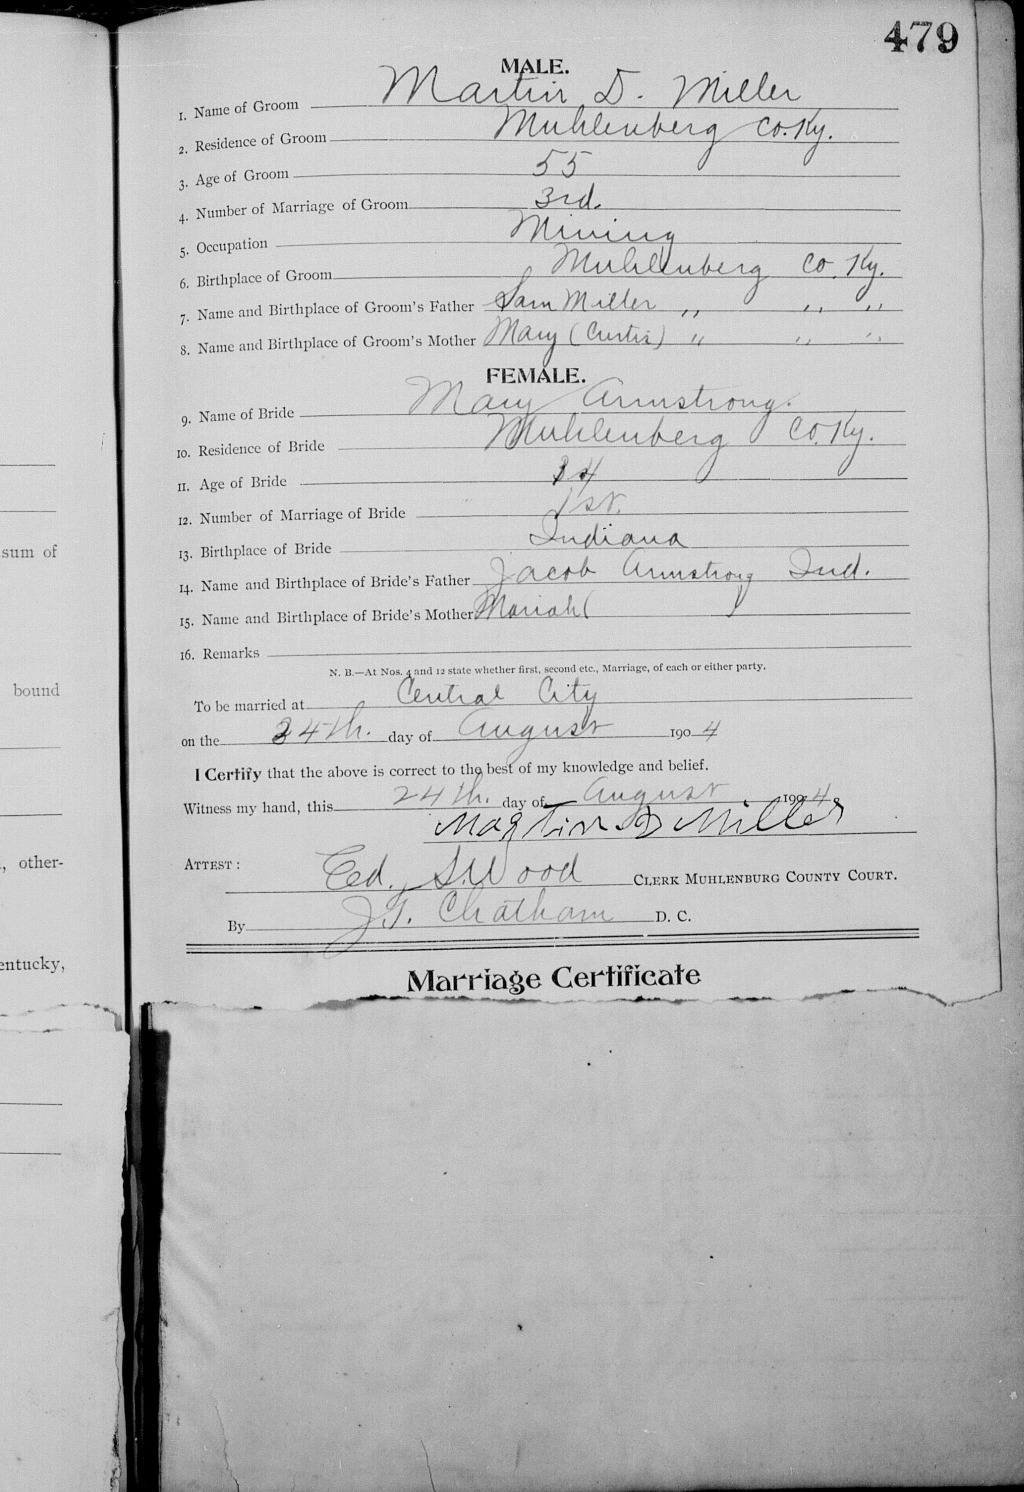 479
MALE.
1. Name of Groom Martin D. Miller
2. Residence of Groom Muhlenberg Co. Ky.
3. Age of Groom 55
4. Number of Marriage of Groom 3rd.
5. Occupation Mining
6. Birthplace of Groom Muhlenberg Co. Ky.
7. Name and Birthplace of Groom's Father Sam Miller " " "
8. Name and Birthplace of Groom's Mother Mary (Curtis) " " "
FEMALE.
9. Name of Bride Mary Armstrong.
10. Residence of Bride Muhlenberg Co. Ky.
11. Age of Bride
12. Number of Marriage of Bride 1st.
13. Birthplace of Bride Indiana
14. Name and Birthplace of Bride's Father Jacob Armstrong Ind.
15. Name and Birthplace of Bride's Mother Mariah (
16. Remarks
N. B.—At Nos. 4 and 12 state whether first, second etc., Marriage, of each or either party.
To be married at Central City
on the 24th. day of August 1904
I Certify that the above is correct to the best of my knowledge and belief.
Witness my hand, this 24th. day of August 1904.
Martin D Miller
ATTEST: Ed. S. Wood CLERK MUHLENBURG COUNTY COURT.
By J.T. Chatham D. C.
Marriage Certificate
sum of
bound
, other-
entucky,